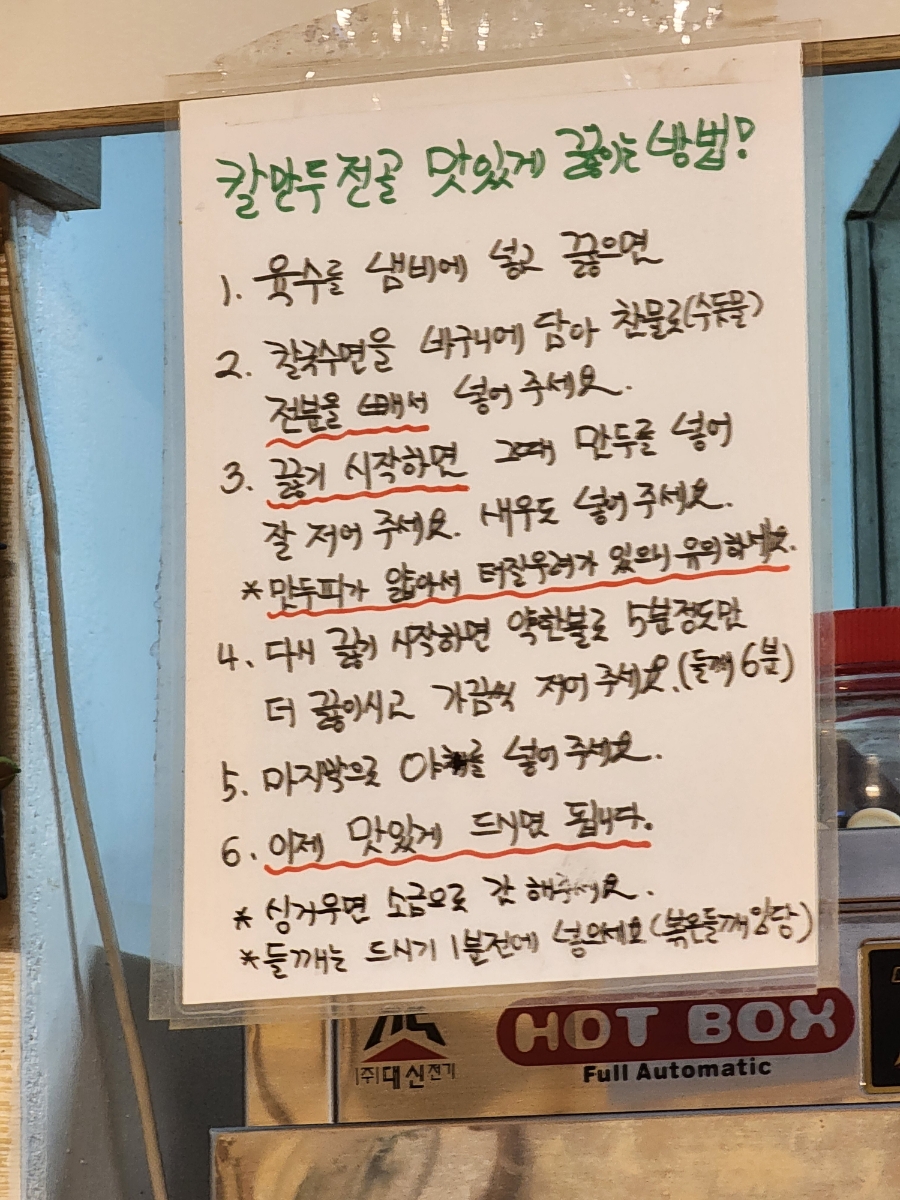 칼만두전골 맛있게 끓이는 방법?
1. 육수를 냄비에 넣고 끓으면
2. 칼국수면을 바구니에 담아 찬물로(수돗물)
전분을 빼서 넣어 주세요.
3. 끓기 시작하면 그때 만두를 넣어
잘 저어 주세요. 새우도 넣어 주세요.
* 만두피가 얇아서 터질우려가 있으니 유의하세요.
4. 다시 끓기 시작하면 약한불로 5분정도만
더 끓이시고 가끔씩 저어 주세요.(들깨 6분)
5. 마지막으로 야채를 넣어 주세요.
6. 이제 맛있게 드시면 됩니다.
* 싱거우면 소금으로 간 해주세요.
* 들깨는 드시기 1분전에 넣으세요(볶은들깨임당)
HOT BOX
(주)대신전기
Full Automatic